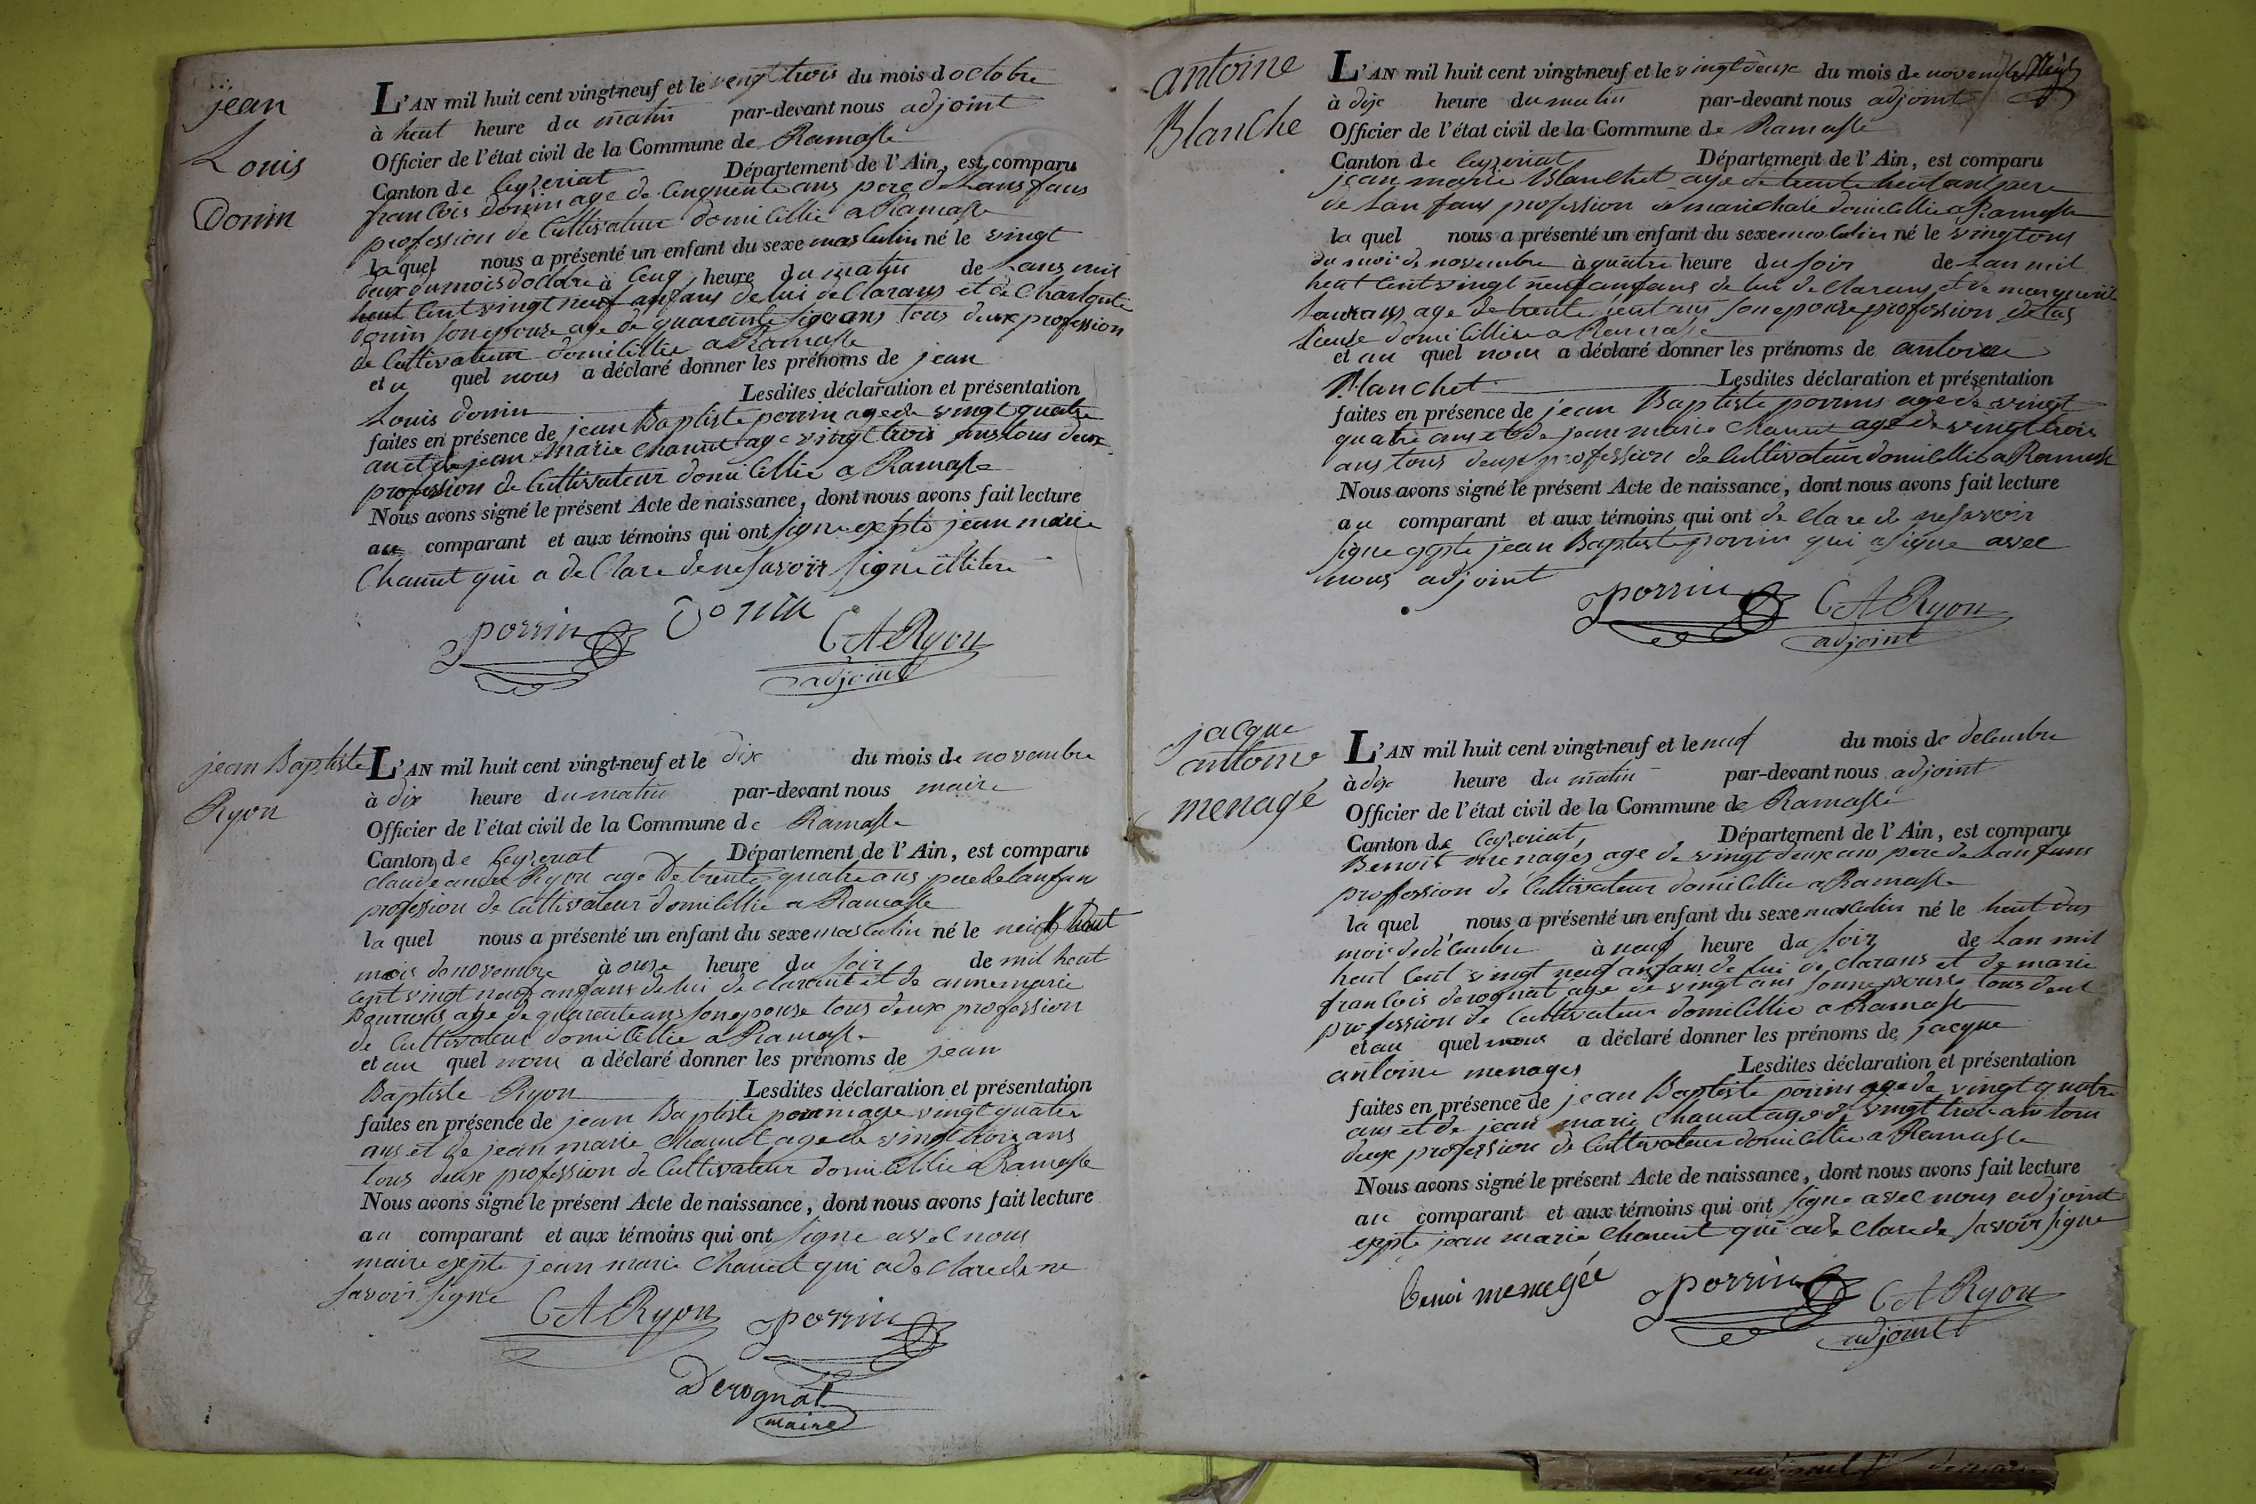 jean
Louis
Donin
L'AN mil huit cent vingt-neuf et le vengt trois du mois d octobre
à heut heure du matin par-devant nous adjoint
Officier de l'état civil de la Commune de Ramasse
Canton de Ceyzeriat Département de l'Ain, est comparu
francois donin age de cenquente ans pere de Lansfans
profession de Cultivateur domicillie a Ramasse
la quel nous a présenté un enfant du sexe masculin né le vingt
deux du mois doctobre à cenq heure du matin de Lans mil
heut Cent vingt neuf anfans de lui declarans et de Charlote
donin son epouse age de quarante six ans tous deux profession
de Cultivateur domicillie a Ramasse
et a quel nous a déclaré donner les prénoms de jean
Louis donin Lesdites déclaration et présentation
faites en présence de jean Baptiste perrin age de vingt quatre
an et de jean marie Chanut age vingt trois ans tous deux
profession de Cultivateur domicillie a Ramasse
Nous avons signé le présent Acte de naissance, dont nous avons fait lecture
au comparant et aux témoins qui ont signe expte jean marie
Chanut qui a de Clare de ne savoir signe
porrin donin CARyon
adjoint
jean Baptiste
Ryon
L'AN mil huit cent vingt-neuf et le dix du mois de novembre
à dix heure du matin par-devant nous maire
Officier de l'état civil de la Commune de Ramasse
Canton de Ceyzeriat Département de l'Ain, est comparu
Claude andre Ryon age De trente quatre ans pere de lanfan
profession de Cultivateur domicillie a Ramasse
la quel nous a présenté un enfant du sexe masculin né le neuf
mois de novembre à onze heure du soir de mil heut
cent vingt neuf anfans de lui de clarant et de anne marie
age de quarante ans son epouse tous deux profession
de Cultivateur domicillie a Ramasse
et au quel nous a déclaré donner les prénoms de jean
Baptiste Ryon Lesdites déclaration et présentation
faites en présence de jean Baptiste porrin age vingt quatre
ans et de jean marie Chanut age de vingt trois ans
tous deux profession de Cultivateur domicillie a Ramasse
Nous avons signé le présent Acte de naissance, dont nous avons fait lecture
au comparant et aux témoins qui ont signe avec nous
maire expte jean marie Chanut qui a de Clare de ne
savoir signe
CARyon porrin
Derognat
maire
antoine
Blanche
L'AN mil huit cent vingt-neuf et le vingt deux du mois de novembre
à dix heure du matin par-devant nous adjoint
Officier de l'état civil de la Commune de Ramasse
Canton de Ceyzeriat Département de l'Ain, est comparu
jean marie Blanchet age de trente heut ans pere
de Lanfans profession de marichale domicillie a Ramasse
la quel nous a présenté un enfant du sexe masculin né le vingt
du mois de novembre à quatre heure du soir de Lan mil
heut Cent vingt neuf anfans de lui de Clarans et de
age de trente ans son epouse profession
domicillie a Ramasse
et au quel nous a déclaré donner les prénoms de antoine
Blanchet Lesdites déclaration et présentation
faites en présence de jean Baptiste porrin age de vingt
quatre ans et de jean marie Chanut age de vingt trois
ans tous deux profession de Cultivateur domicillie a Ramasse
Nous avons signé le présent Acte de naissance, dont nous avons fait lecture
au comparant et aux témoins qui ont de Clare de ne savoir
signe expte jean Baptiste porrin qui a signe avec
nous adjoint
porrin CARyon
adjoint
jacque
antoine
menage
L'AN mil huit cent vingt-neuf et le neuf du mois de decembre
à dix heure du matin par-devant nous adjoint
Officier de l'état civil de la Commune de Ramasse
Canton de Ceyzeriat Département de l'Ain, est comparu
Benoit menages age de vingt deux ans pere de Lanfans
profession de Cultivateur domicillie a Ramasse
la quel nous a présenté un enfant du sexe masculin né le heut dus
mois de decembre à neuf heure du soir de Lan mil
heut Cent vingt neuf anfans de lui de clarans et de marie
francois derognat age de vingt ans sonne pouse tous deux
profession de Cultivateur domicillie a Ramasse
et au quel nous a déclaré donner les prénoms de jacque
antoine menages Lesdites déclaration et présentation
faites en présence de jean Baptiste porrin age de vingt quatre
ans et de jean marie Chanut age de vingt trois ans tous
deux profession de Cultivateur domicillie a Ramasse
Nous avons signé le présent Acte de naissance, dont nous avons fait lecture
au comparant et aux témoins qui ont signe avec nous adjoint
expte jean marie Chanut qui a de Clare de savoir signe
benoi menagée porrin CARyon
adjoint